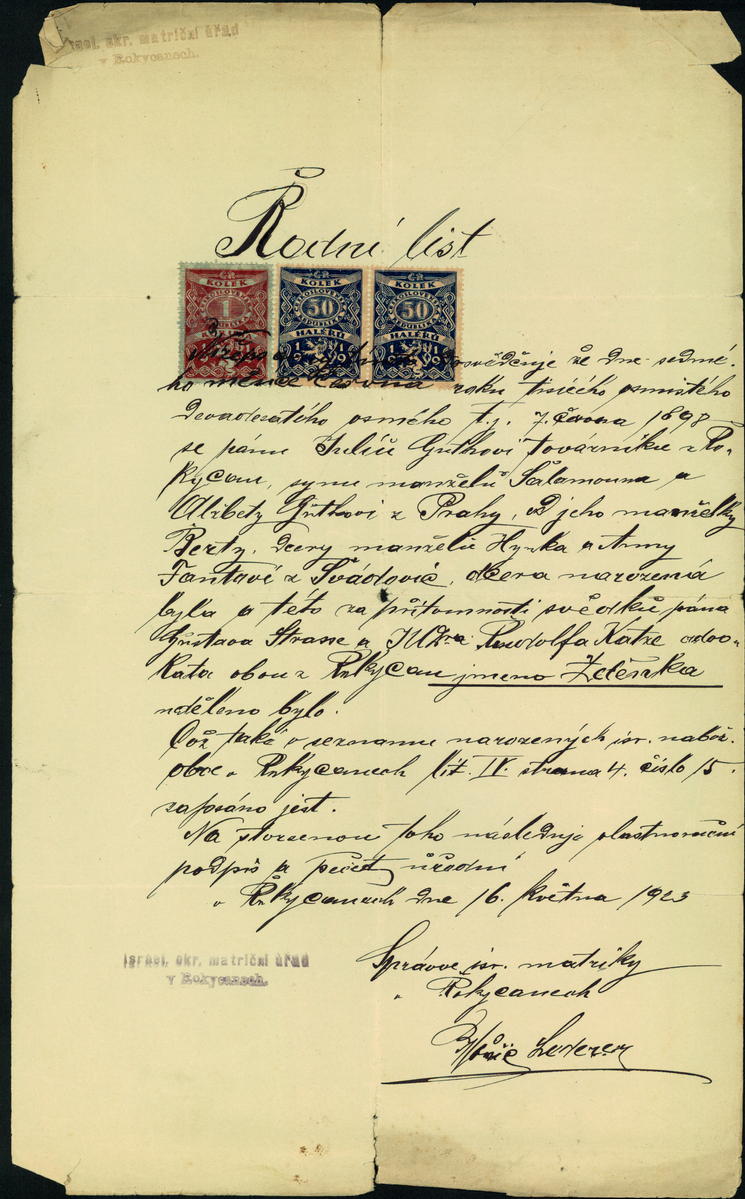 Israel. okr. matriční úřad
v Rokycanech.
Rodní list
ČR
KOLEK
1
ČR
KOLEK
50
HALÉŘŮ
1919
ČR
KOLEK
50
HALÉŘŮ
1919
osvědčuje že dne sedmé-
ho měsíce června roku tisícého osmistého
devadesátého osmého t.j. 7. června 1898
se pánu Juliu Güthovi továrníku z Ro-
kycan, synu manželů Šalamouna a
Alžběty Güthovi z Prahy, od jeho manželky
Berty, dcery manželů Hynka a Anny
Fantovi z Svádovic, dcera narozená
byla a této za přítomnosti svědků pána
Gustava Strasse a JUDra Rudolfa Katze advo-
kata obou z Rokycan jmeno Zdeňka
uděleno bylo.
Což také v seznamu narozených isr. nábož.
obce v Rokycanech lit. IV. strana 4. číslo 15.
zapsáno jest.
Na stvrzenou toho následuje vlastnoruční
podpis a pečeť úřední
v Rokycanech dne 16. května 1923
Israel. okr. matriční úřad
v Rokycanech.
Správce isr. matriky
v Rokycanech
Lederer